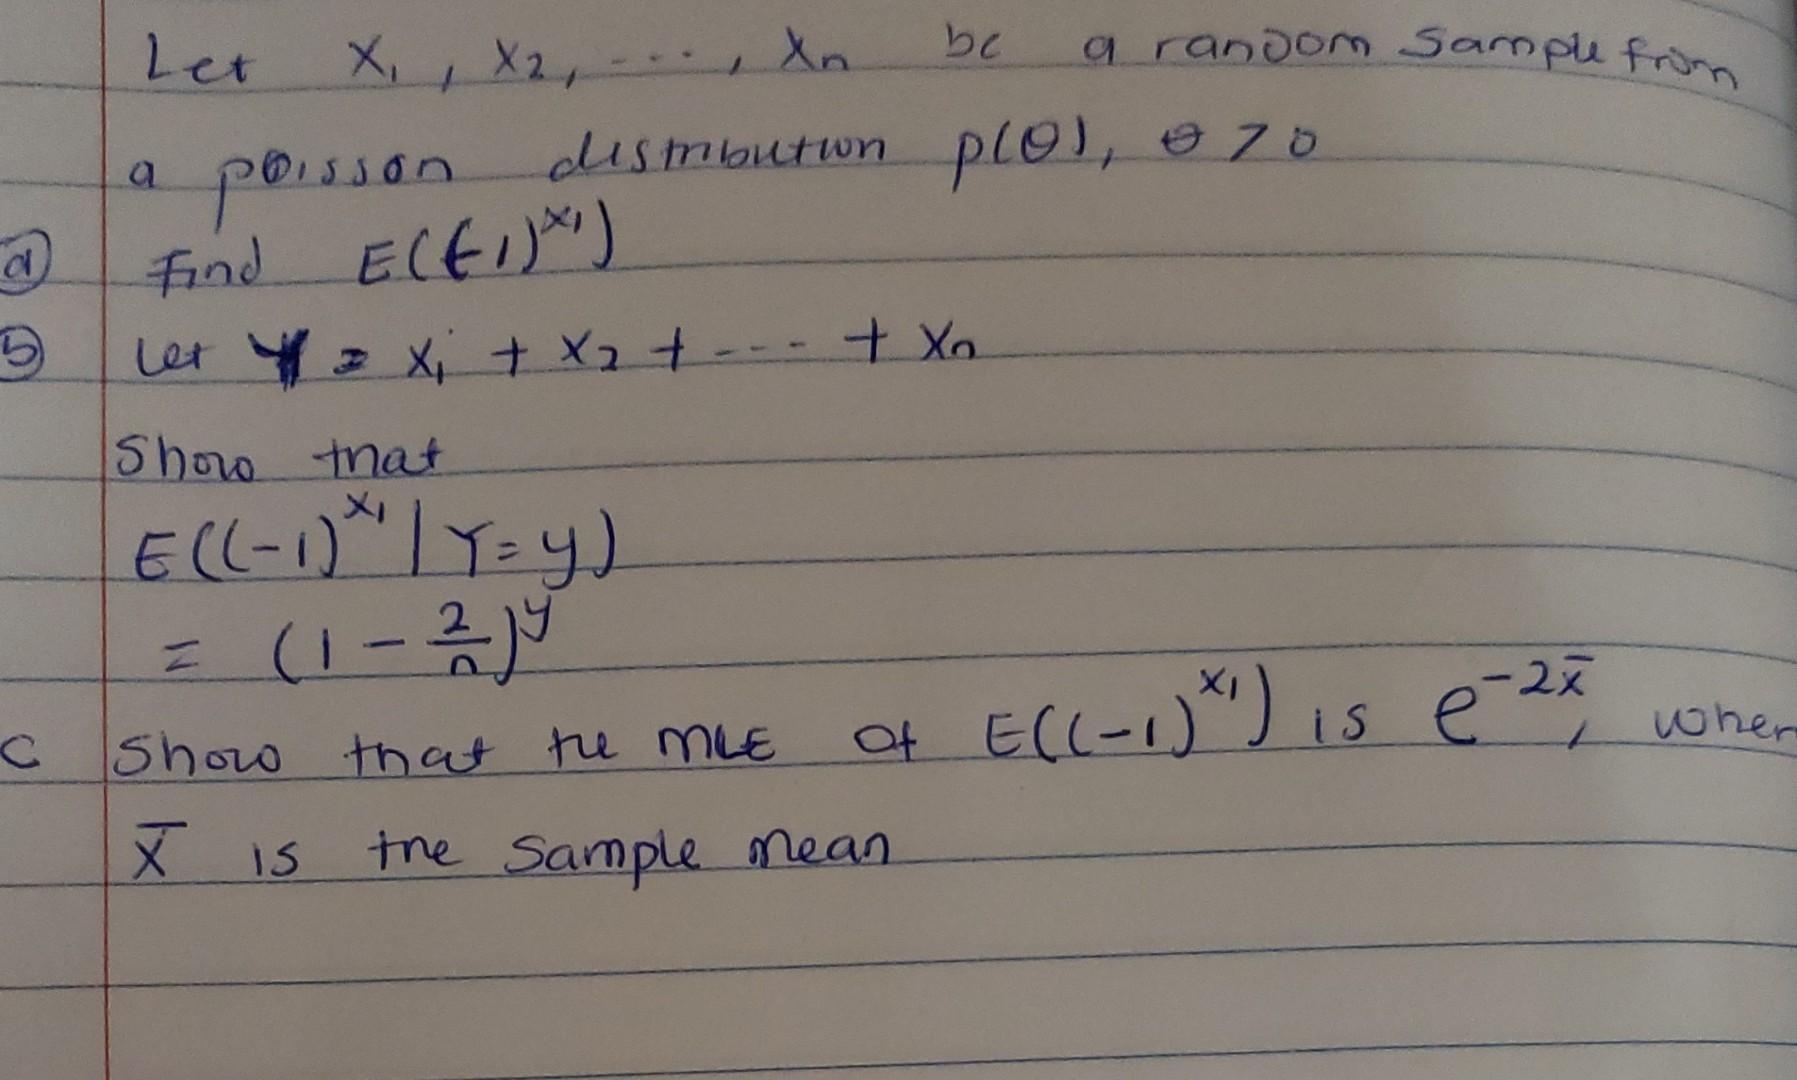 Let X₁, X₂, ..., Xn be a random sample from
a poisson distribution p(θ), θ > 0
ⓐ Find E((-1)^X₁)
ⓑ Let Y = X₁ + X₂ + --- + Xn
Show that
E((-1)^X₁ | Y=y)
= (1 - 2/n)^y
C Show that the MLE of E((-1)^X₁) is e^-2x̄, wher
X̄ is the sample mean